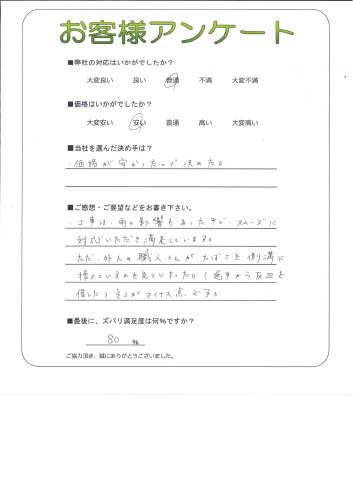 お客様アンケート
■弊社の対応はいかがでしたか？
大変良い 良い 普通 不満 大変不満
■価格はいかがでしたか？
大変安い 安い 普通 高い 大変高い
■当社を選んだ決め手は？
・価格が安かったので決めた。
■ご感想・ご要望などをお書き下さい。
・工事は、雨の影響もあった中で、スムーズに
対応いただき満足しています。
ただ、外人の職人さんがたばこを側溝に
捨てているのを見ていました。(途中から灰皿を
借した)そこがマイナス点です。
■最後に、ズバリ満足度は何%ですか？
80 %
ご協力頂き、誠にありがとうございました。